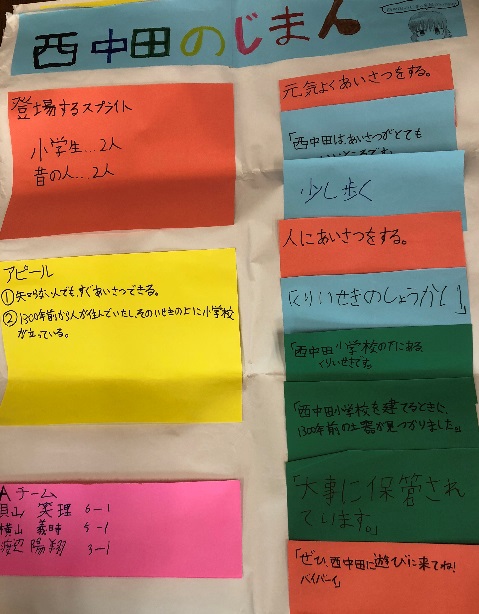 西中田のじまん
登場するスプライト
小学生…2人
昔の人…2人
アピール
①知らない人でも、すぐあいさつできる。
②1300年前から人が住んでいたし、そのいせきの上に小学校
が立っている。
Aチーム
貝山 笑理 6-1
横山 義時
渡辺 陽翔 3-1
元気よくあいさつをする。
「西中田は、あいさつがとても
少し歩く
人にあいさつをする。
「くりいせきのしょうかく」
「西中田小学校の下にある
くりいせきです。
「西中田小学校を建てるときに、
1300年前の土器が見つかりました。」
「大事に保管され
ています。」
「ぜひ、西中田に遊びに来てね!
バイバーイ」